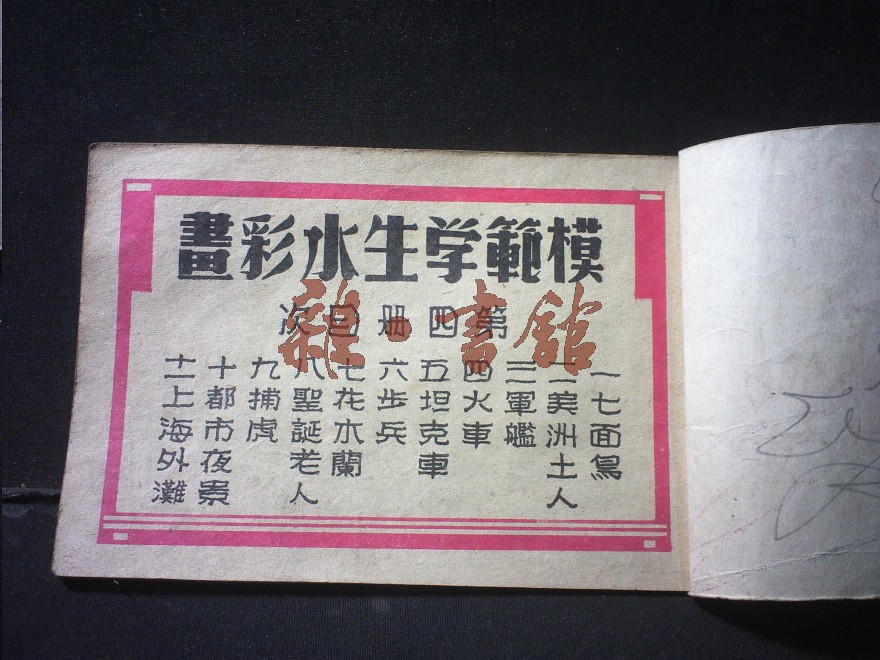 模範学生水彩畫
第四册目次
一七面鳥
二美洲土人
三軍艦
四火車
五坦克車
六步兵
七花木蘭
八聖誕老人
九捕虎
十都市夜景
十一上海外灘
雜·書館